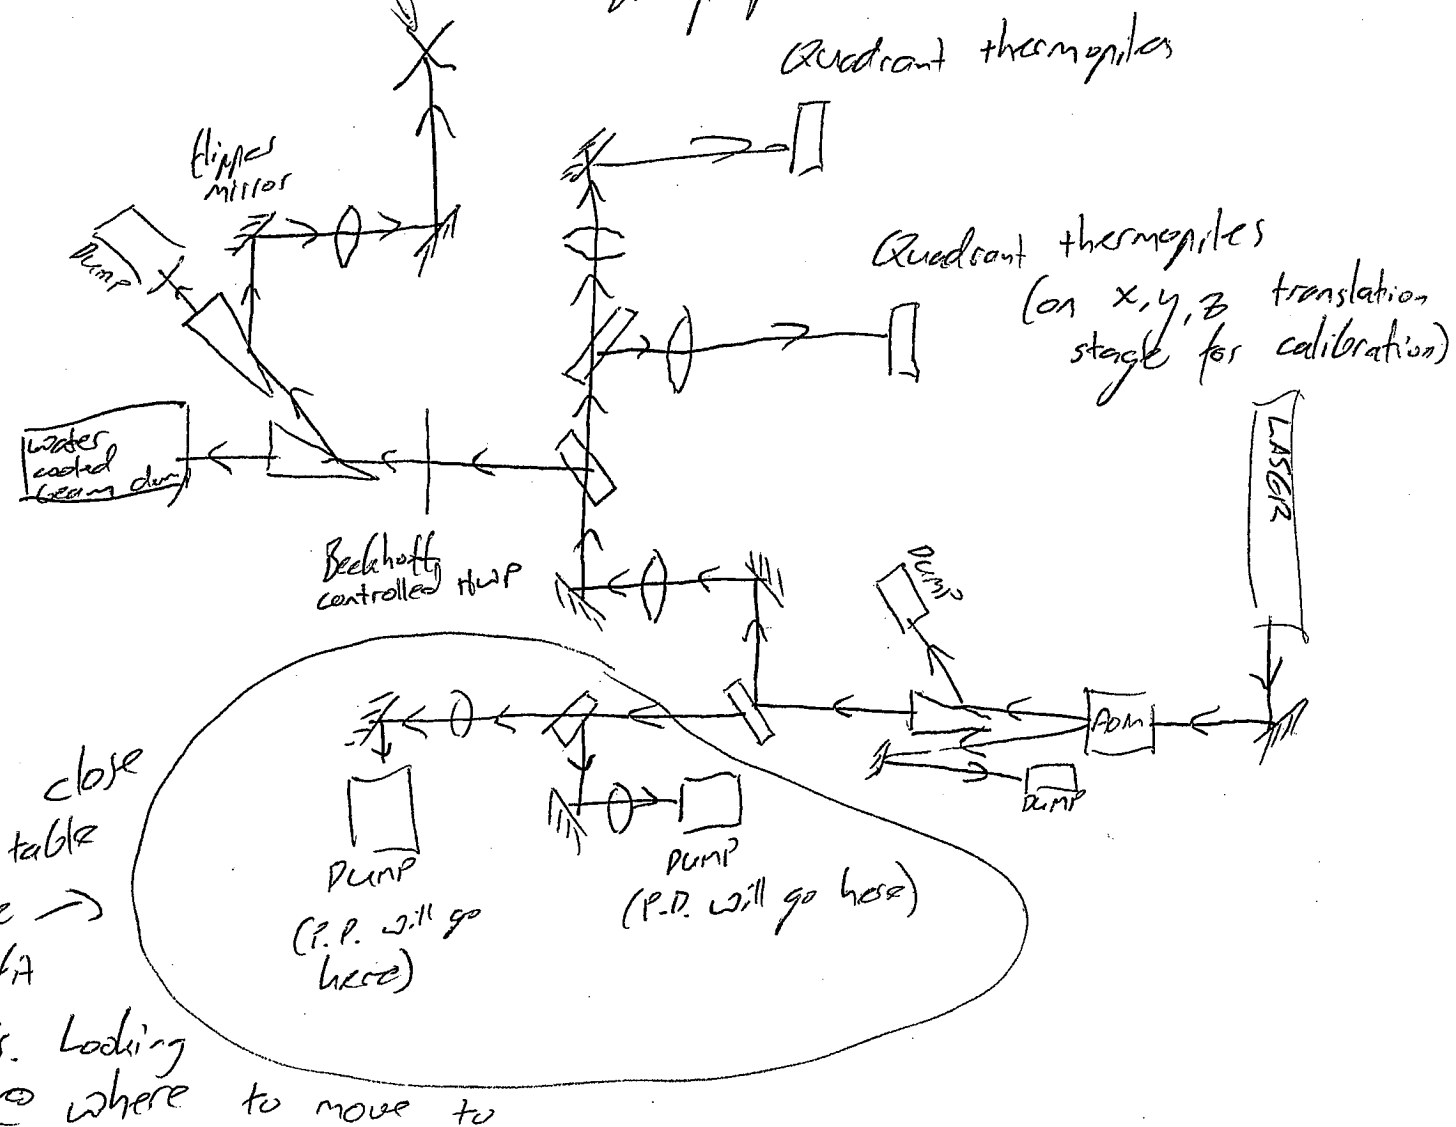 Quadrant thermopiles
Flipper
mirror
Dump
Quadrant thermopiles
(on x, y, z translation
stage for calibration)
LASER
water
cooled
beam dump
Beckhoff
controlled HWP
Dump
AOM
DUMP
close
table
DUMP
(P.D. will go
here)
DUMP
(P.D. will go here)
Looking
where to move to